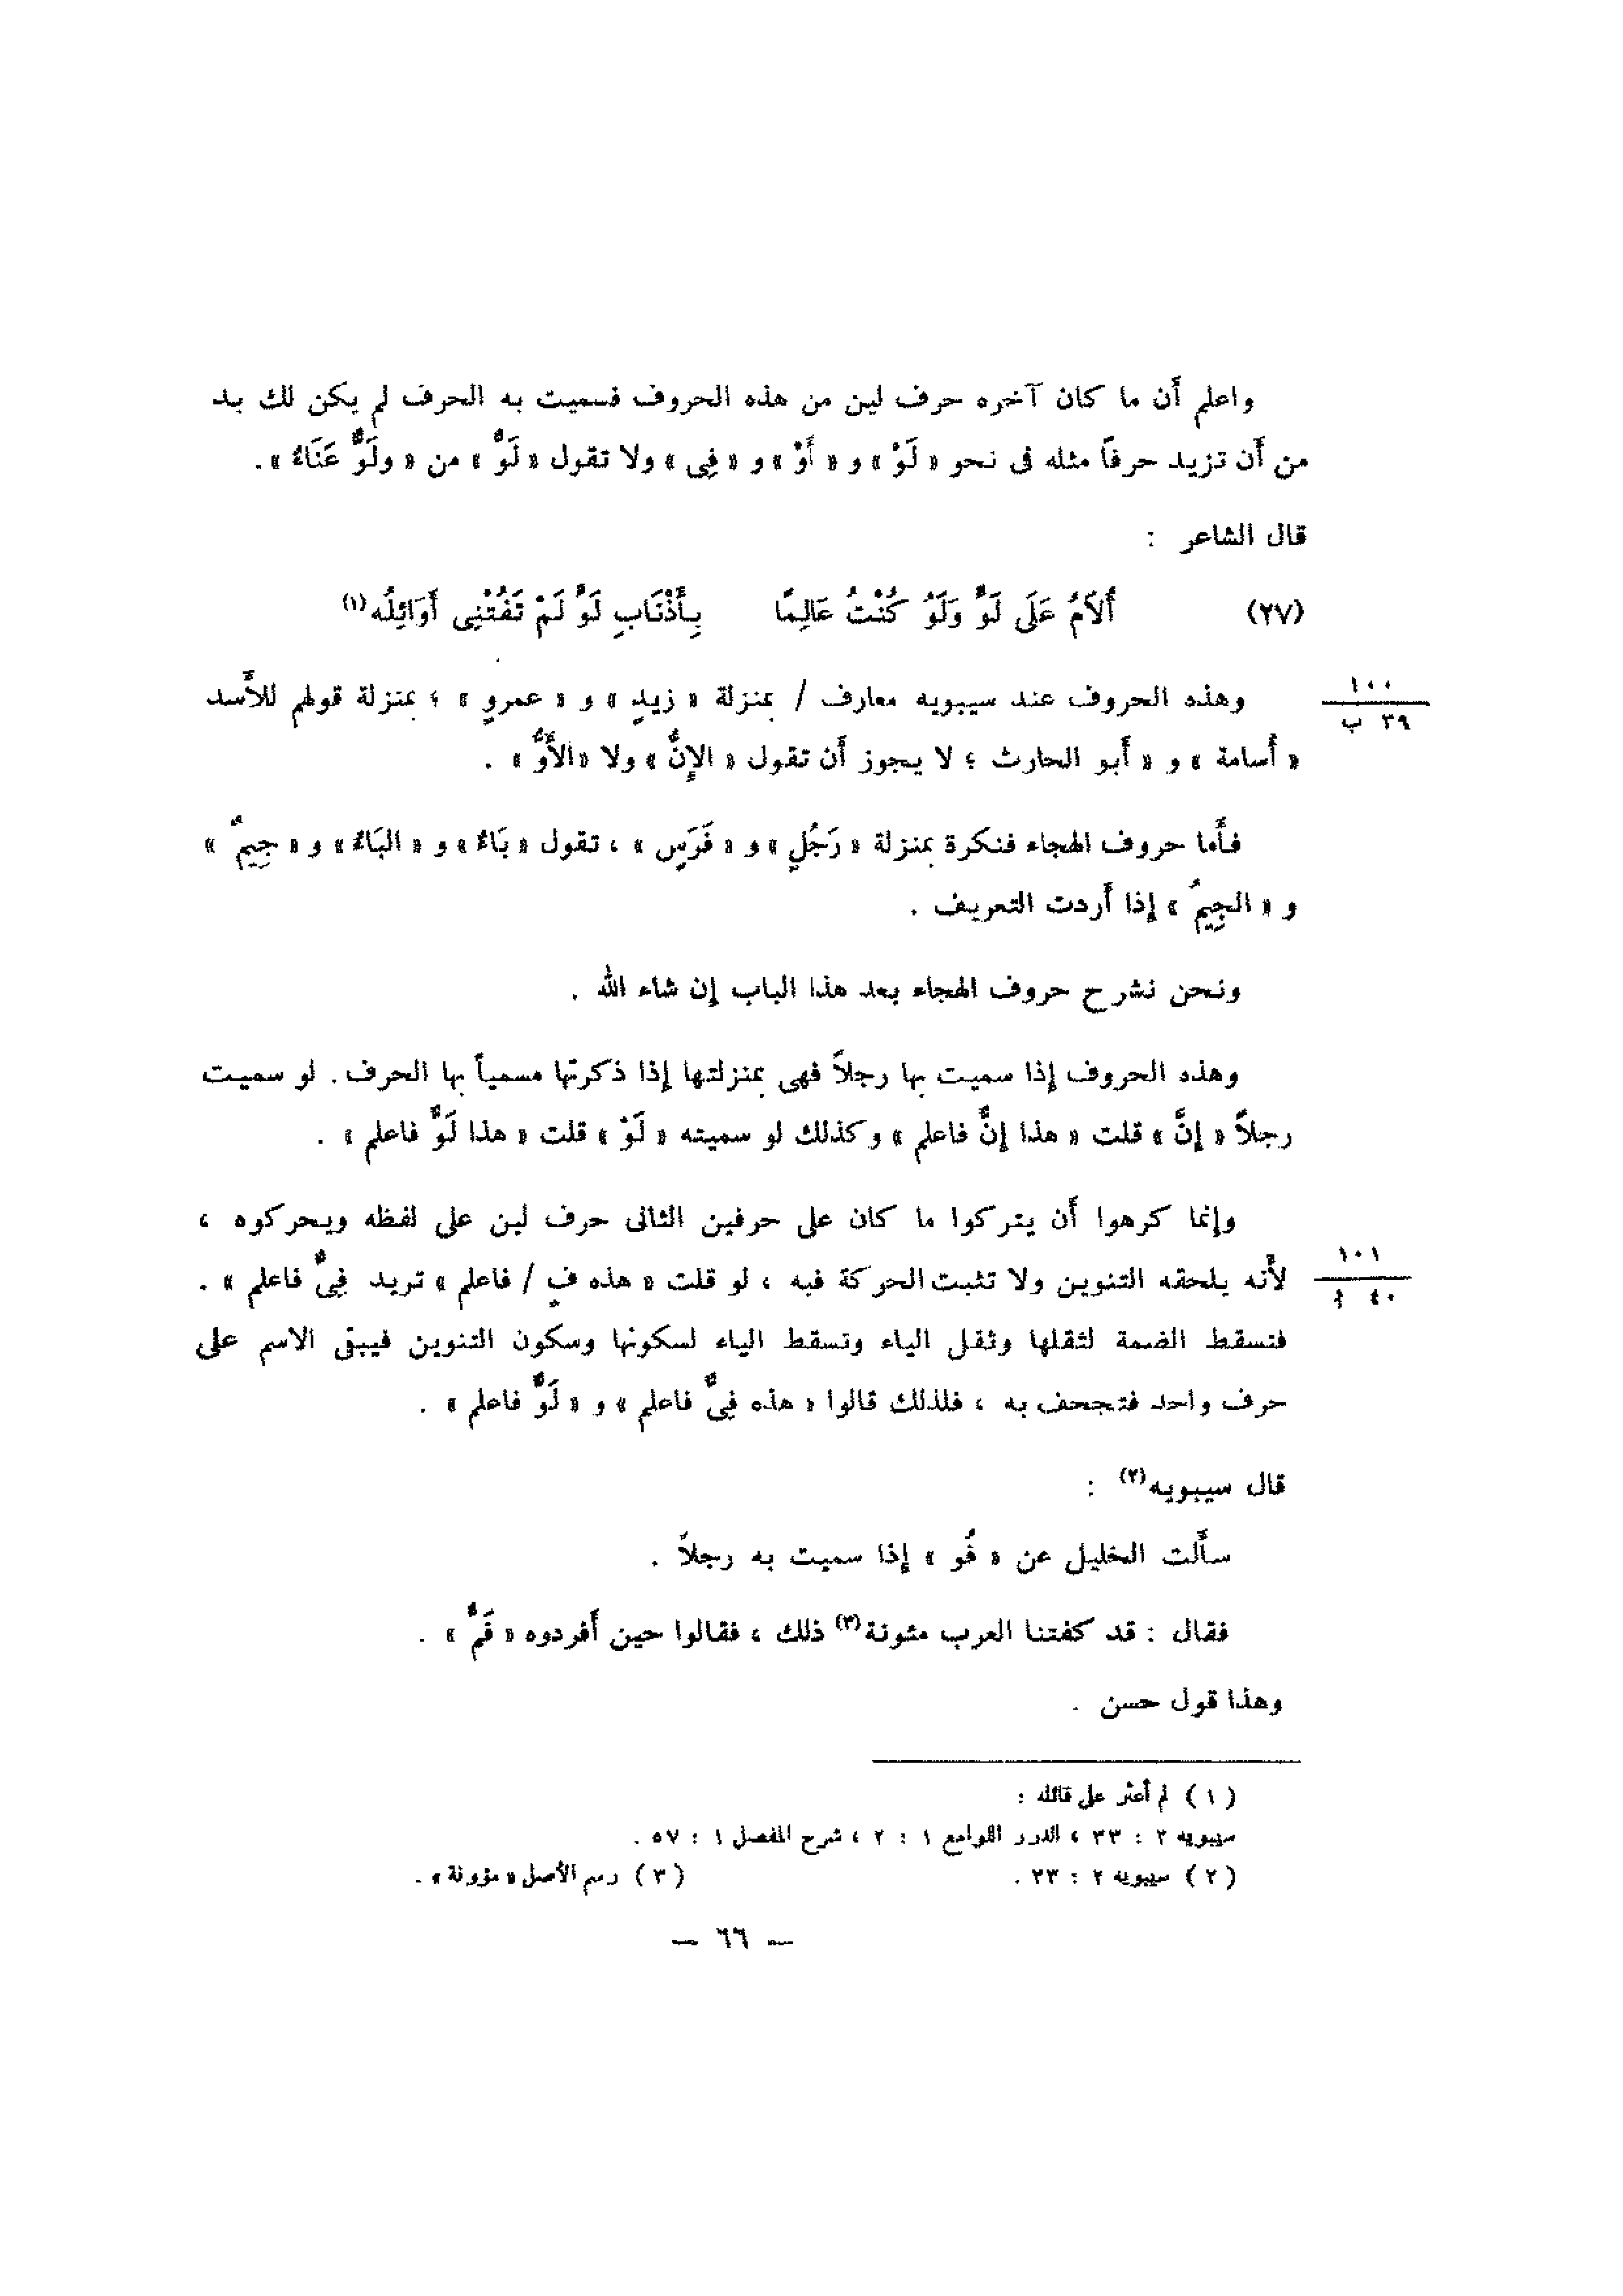 واعلم أَن ما كان آخره حرف لين من هذه الحروف فسميت به الحرف لم يكن لك بد
من أَن تزيد حرفاً مثله فى نحو « لَوْ » و « أَوْ » و « فِى » ولا تقول « لَوٌّ » من « ولَوٌّ عَنَاءٌ ».
قال الشاعر :
(٢٧) أُلاَمُ عَلَى لَوٍّ وَلَوْ كُنْتُ عَالِمًا بِأَذْنَابِ لَوٍّ لَمْ تَفُتْنِى أَوَائِلُه(١)
١٠٠
٣٩ ب
وهذه الحروف عند سيبويه معارف / بمنزلة « زيدٍ » و « عمروٍ » ؛ بمنزلة قولهم للأَسد
« أُسامة » و « أَبو الحارث ؛ لا يجوز أَن تقول « الإِنُّ » ولا «الأَوُّ » .
فأَما حروف الهجاء فنكرة بمنزلة « رَجُلٍ » و « فَرَسٍ » ، تقول « بَاءٌ » و « البَاءُ » و « جِيمٌ »
و « الجِيمُ » إِذا أَردت التعريف .
ونحن نشرح حروف الهجاء بعد هذا الباب إِن شاء الله .
وهذه الحروف إِذا سميت بها رجلاً فهى بمنزلتها إِذا ذكرتها مسمياً بها الحرف . لو سميت
رجلاً « إِنَّ » قلت « هذا إِنٌّ فاعلم » وكذلك لو سميته « لَوْ » قلت « هذا لَوٌّ فاعلم » .
وإِنما كرهوا أَن يتركوا ما كان على حرفين الثانى حرف لين على لفظه ويحركوه ،
١٠١
٤٠ أ
لأَنه يلحقه التنوين ولا تثبت الحركة فيه ، لو قلت « هذه فٍ / فاعلم » تريد فِىٌ فاعلم » .
فتسقط الضمة لثقلها وثقل الياء وتسقط الياء لسكونها وسكون التنوين فيبقى الاسم على
حرف واحد فتجحف به ، فلذلك قالوا « هذه فِىٌّ فاعلم » و « لَوٌّ فاعلم » .
قال سيبويه(٢) :
سأَلت الخليل عن « فُو » إِذا سميت به رجلاً .
فقال : قد كفتنا العرب مئونة(٣) ذلك ، فقالوا حين أَفردوه « فَمٌ » .
وهذا قول حسن .
( ١ ) لم أعثر على قائله :
سيبويه ٢ : ٣٣ ، الدرر اللوامع ١ : ٢ ، شرح المفصل ١ : ٥٧ .
( ٢ ) سيبويه ٢ : ٣٣ . ( ٣ ) رسم الأصل « مؤونة » .
— ٦٦ —